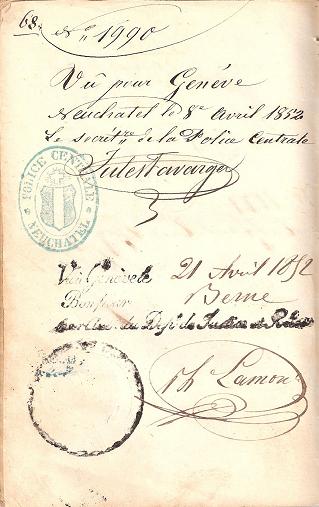 68.
No 1990
Vû pour Genéve
Neuchatel le 8e Avril 1852
Le secrét.re de la Police Centrale
Jules Favarger
POLICE CENTRALE
NEUCHATEL
Vu à Genève le 21 Avril 1852
Bon pour Berne
du Dépt. de Justice et Police